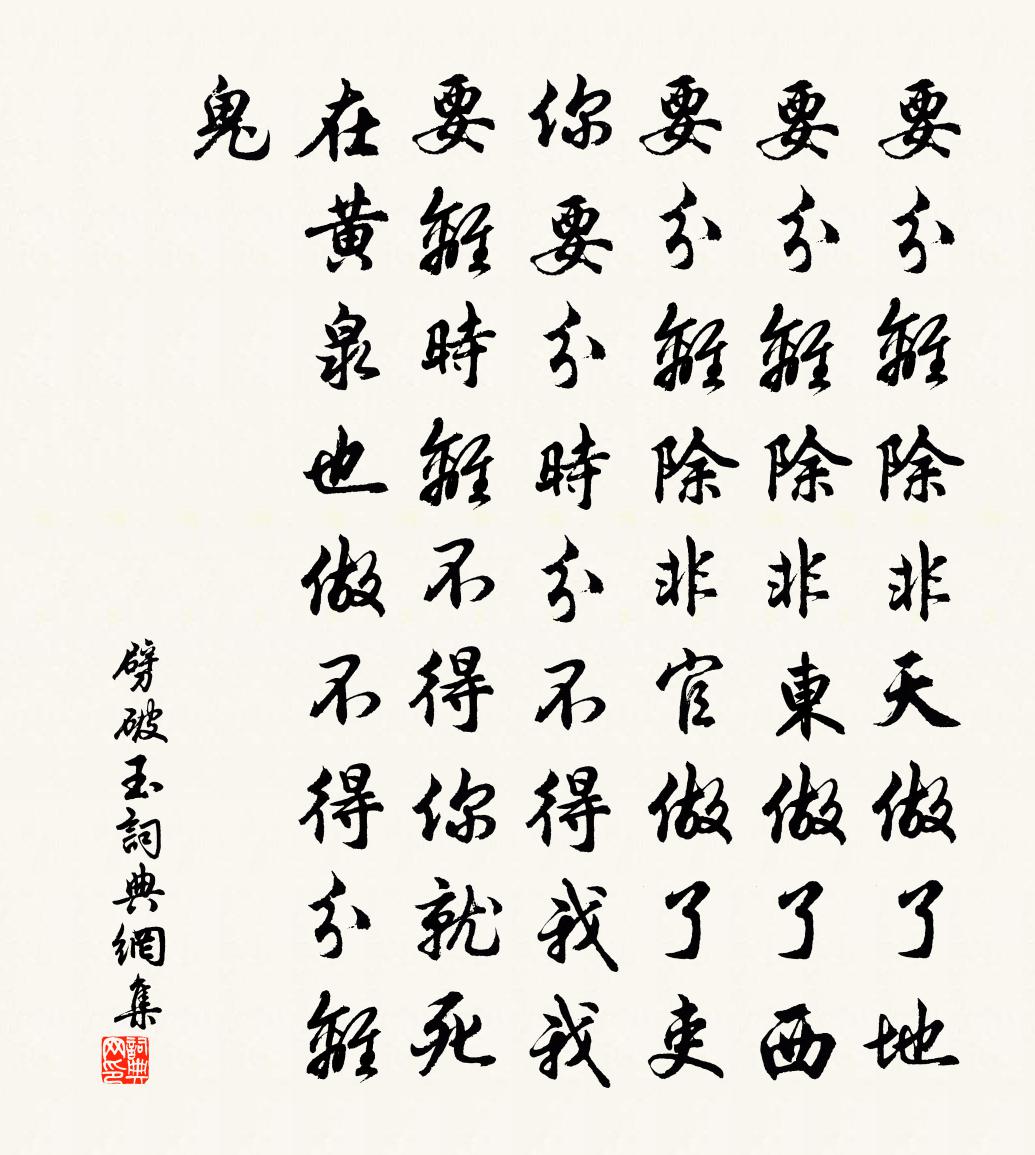 要分離除非天做了地
要分離除非東做了西
要分離除非官做了吏
你要分時分不得我我
要離時離不得你就死
在黃泉也做不得分離
鬼
劈破玉詞典網集
詞典网印